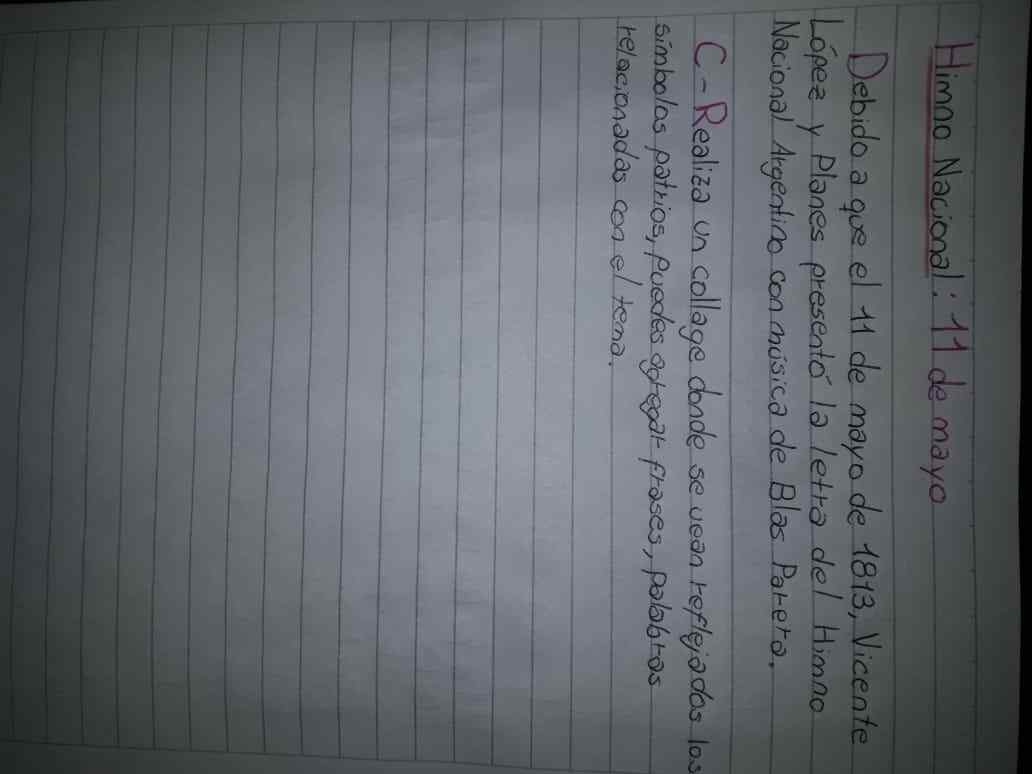 Himno Nacional: 11 de mayo
Debido a que el 11 de mayo de 1813, Vicente
López y Planes presentó la letra del Himno
Nacional Argentino con música de Blas Parera.
C - Realiza un collage donde se vean reflejados los
símbolos patrios, puedes agregar frases, palabras
relacionadas con el tema.